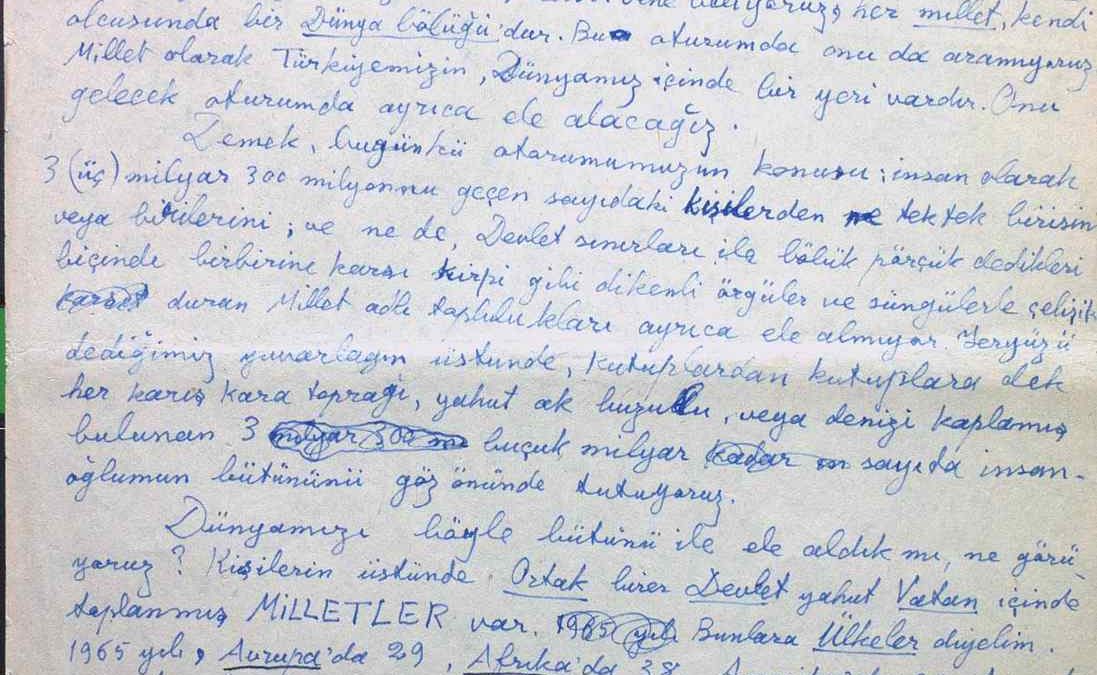 her millet, kendi
ölçüsünde bir Dünya bölüğü'dür. Bu oturumda onu da aramıyoruz
Millet olarak Türkiyemizin, Dünyamız içinde bir yeri vardır. Onu
gelecek oturumda ayrıca ele alacağız.
Demek, bugünkü oturumumuzun konusu; insan olarak
3 (üç) milyar 300 milyonunu geçen sayıdaki kişilerden ne tek tek birisin
veya birilerini; ve ne de, Devlet sınırları ile bölük pörçük dedikleri
biçinde birbirine karşı kirpi gibi dikenli örgüler ve süngülerle çelişik
duran Millet adlı toplulukları ayrıca ele almıyor. Yeryüzü
dediğimiz yuvarlağın üstünde, kutuplardan kutuplara dek
her karış kara toprağı, yahut ak buzulu, veya denizi kaplamış
bulunan 3 milyar 300 m buçuk milyar kadar sayıda insan-
oğlumun bütününü göz önünde tutuyoruz.
Dünyamızı böyle bütünü ile ele aldık mı, ne görü-
yoruz? Kişilerin üstünde Ortak birer Devlet yahut Vatan içinde
toplanmış MİLLETLER var. 1965 yılı Bunlara Ülkeler diyelim.
1965 yılı, Avrupa'da 29, Afrika'da 38,